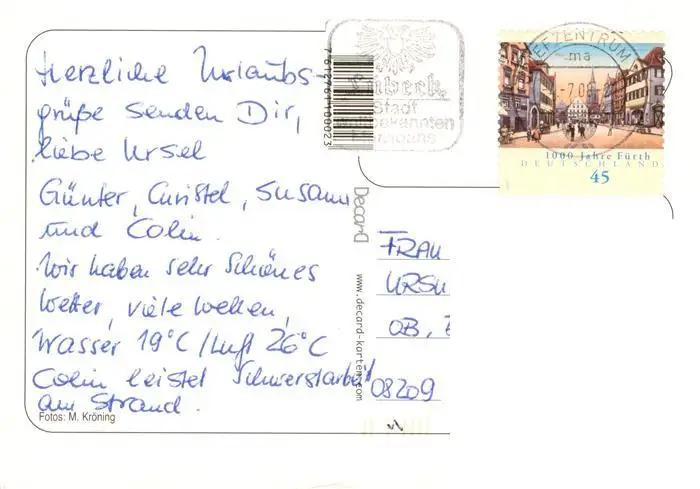 Herzliche Urlaubs-
grüße senden Dir,
liebe Ursel
Günter, Christel, Susann
und Colin.
Wir haben sehr schönes
Wetter, viele Wellen,
Wasser 19°C / Luft 26°C
Colin leistet Schwerstarbeit
am Strand.
Fotos: M. Kröning
7612961100023
Decard
www.decard-karten.com
Einbeck
Stadt
EFZENTRUM
ma
-7.08
1000 Jahre Fürth
DEUTSCHLAND
45
FRAU
URSU
OB,
08209